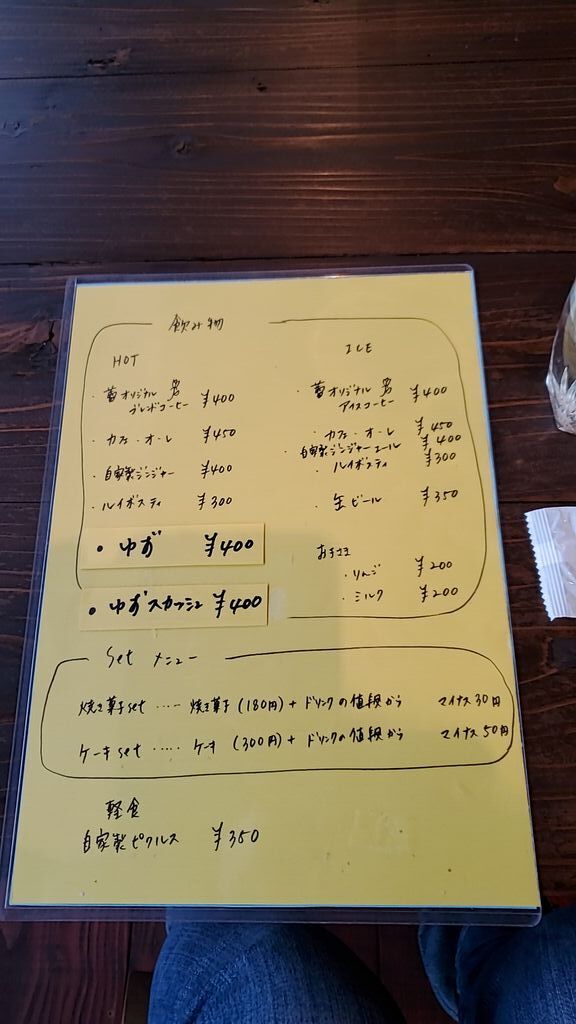 飲み物
HOT
・苗オリジナル
ブレンドコーヒー ¥400
・カフェ・オ・レ ¥450
・自家製ジンジャー ¥400
・ルイボスティ ¥300
・ゆず ¥400
・ゆずスカッシュ ¥400
ICE
・苗オリジナル
アイスコーヒー ¥400
・カフェ・オ・レ ¥450
・自家製ジンジャーエール ¥400
・ルイボスティ ¥300
・缶ビール ¥350
お子さま
・りんご ¥200
・ミルク ¥200
Set メニュー
焼き菓子set ····· 焼き菓子(180円)+ドリンクの値段から マイナス30円
ケーキset ····· ケーキ(300円)+ドリンクの値段から マイナス50円
軽食
自家製ピクルス ¥350